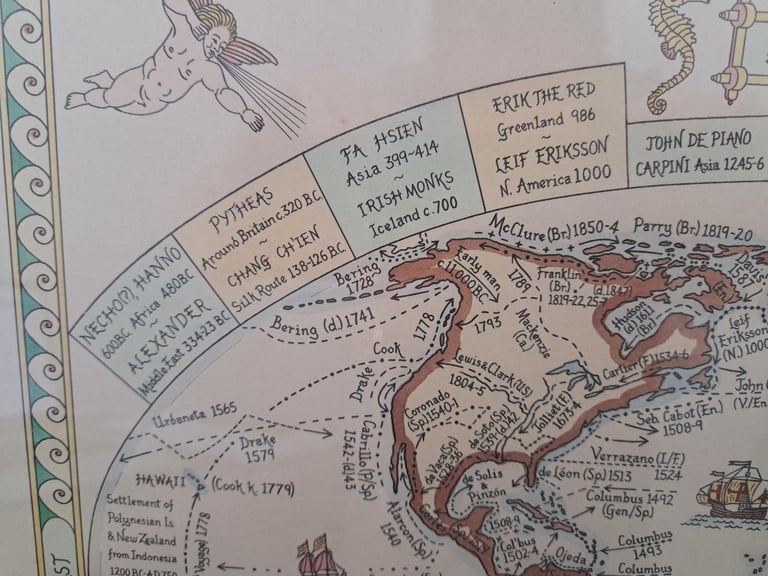 ERIK THE RED
Greenland 986
~
LEIF ERIKSSON
N. America 1000
FA HSIEN
Asia 399~414
~
IRISH MONKS
Iceland c.700
JOHN DE PIANO
CARPINI Asia 1245-6
PYTHEAS
Around Britain c.320 B.C.
~
CHANG CH'IEN
Silk Route 138-126 B.C.
NECHO(?), HANNO
600BC Africa 480BC
ALEXANDER
Middle East 334-23 BC
McClure (Br.) 1850-4
Parry (Br.) 1819-20
Bering
1728
Early man
c.11000BC
1789
Franklin
(Br.) (d.1847)
1819-22,25-7
Davis
1587
(En.)
Hudson
(d) 1611
(Br.)
Bering (d) 1741
1778
1793
Mackenzie
(Ca.)
Leif
Eriksson
(N.) 1000
Cook
Cartier (F) 1534-6
Lewis & Clark (US)
1804-5
Drake
John
(V/En.
Coronado
(Sp) 1540-1
de Soto (Sp)
1539-(d)42
Jolliet (F.)
1673-4
Seb. Cabot (En.)
1508-9
Urbaneta 1565
Drake
1579
Cabrillo (P/Sp)
1542-(d)43
de Vaca (Sp)
1528-36
Verrazano (I/F)
1524
de Solis
Pinzón
1508-9
de Léon (Sp) 1513
HAWAII
(Cook k. 1779)
Columbus 1492
(Gen/Sp)
Settlement of
Polynesian Is
& New Zealand
from Indonesia
1200 BC-AD750
1778
Alarcon (Sp)
1540
Cortes (Sp) 1519
Col'bus
1502-4
Ojeda
Columbus
1493
Columbus
ST